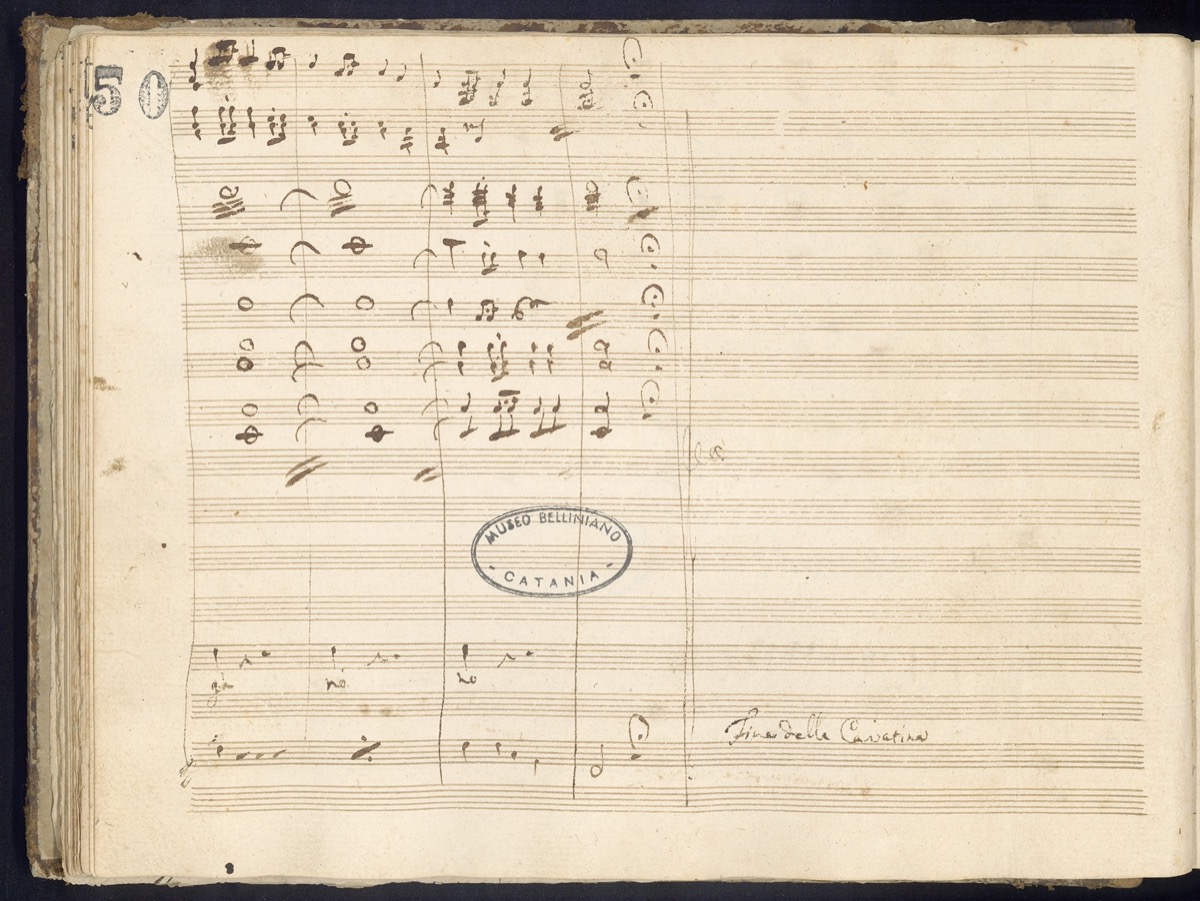 50
MUSEO BELLINIANO
- CATANIA -
no
no
Fine della Cavatina